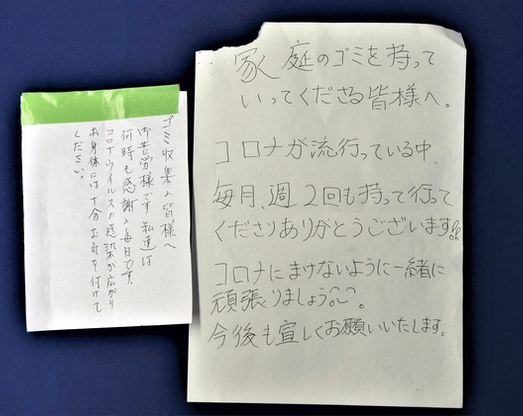 ゴミ収集の皆様へ
御苦労様です 私達は
何時も感謝の毎日です。
コロナウイルスの感染が広がり
お身体には十分お気を付けて
ください。
家庭のゴミを持って
いってくださる皆様へ。
コロナが流行っている中、
毎月、週2回も持って行って
くださりありがとうございます!!
コロナにまけないように一緒に
頑張りましょう^^。
今後も宜しくお願いいたします。